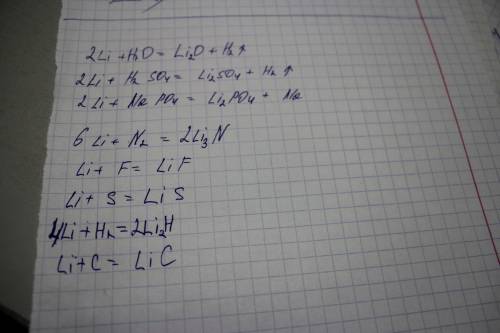 2Li + H2O = Li2O + H2↑
2Li + H2 SO4 = Li2SO4 + H2↑
2Li + Na PO4 = Li2PO4 + Na
6 Li + N2 = 2Li3N
Li + F = LiF
Li + S = LiS
4Li + H2 = 2Li2H
Li + C = LiC